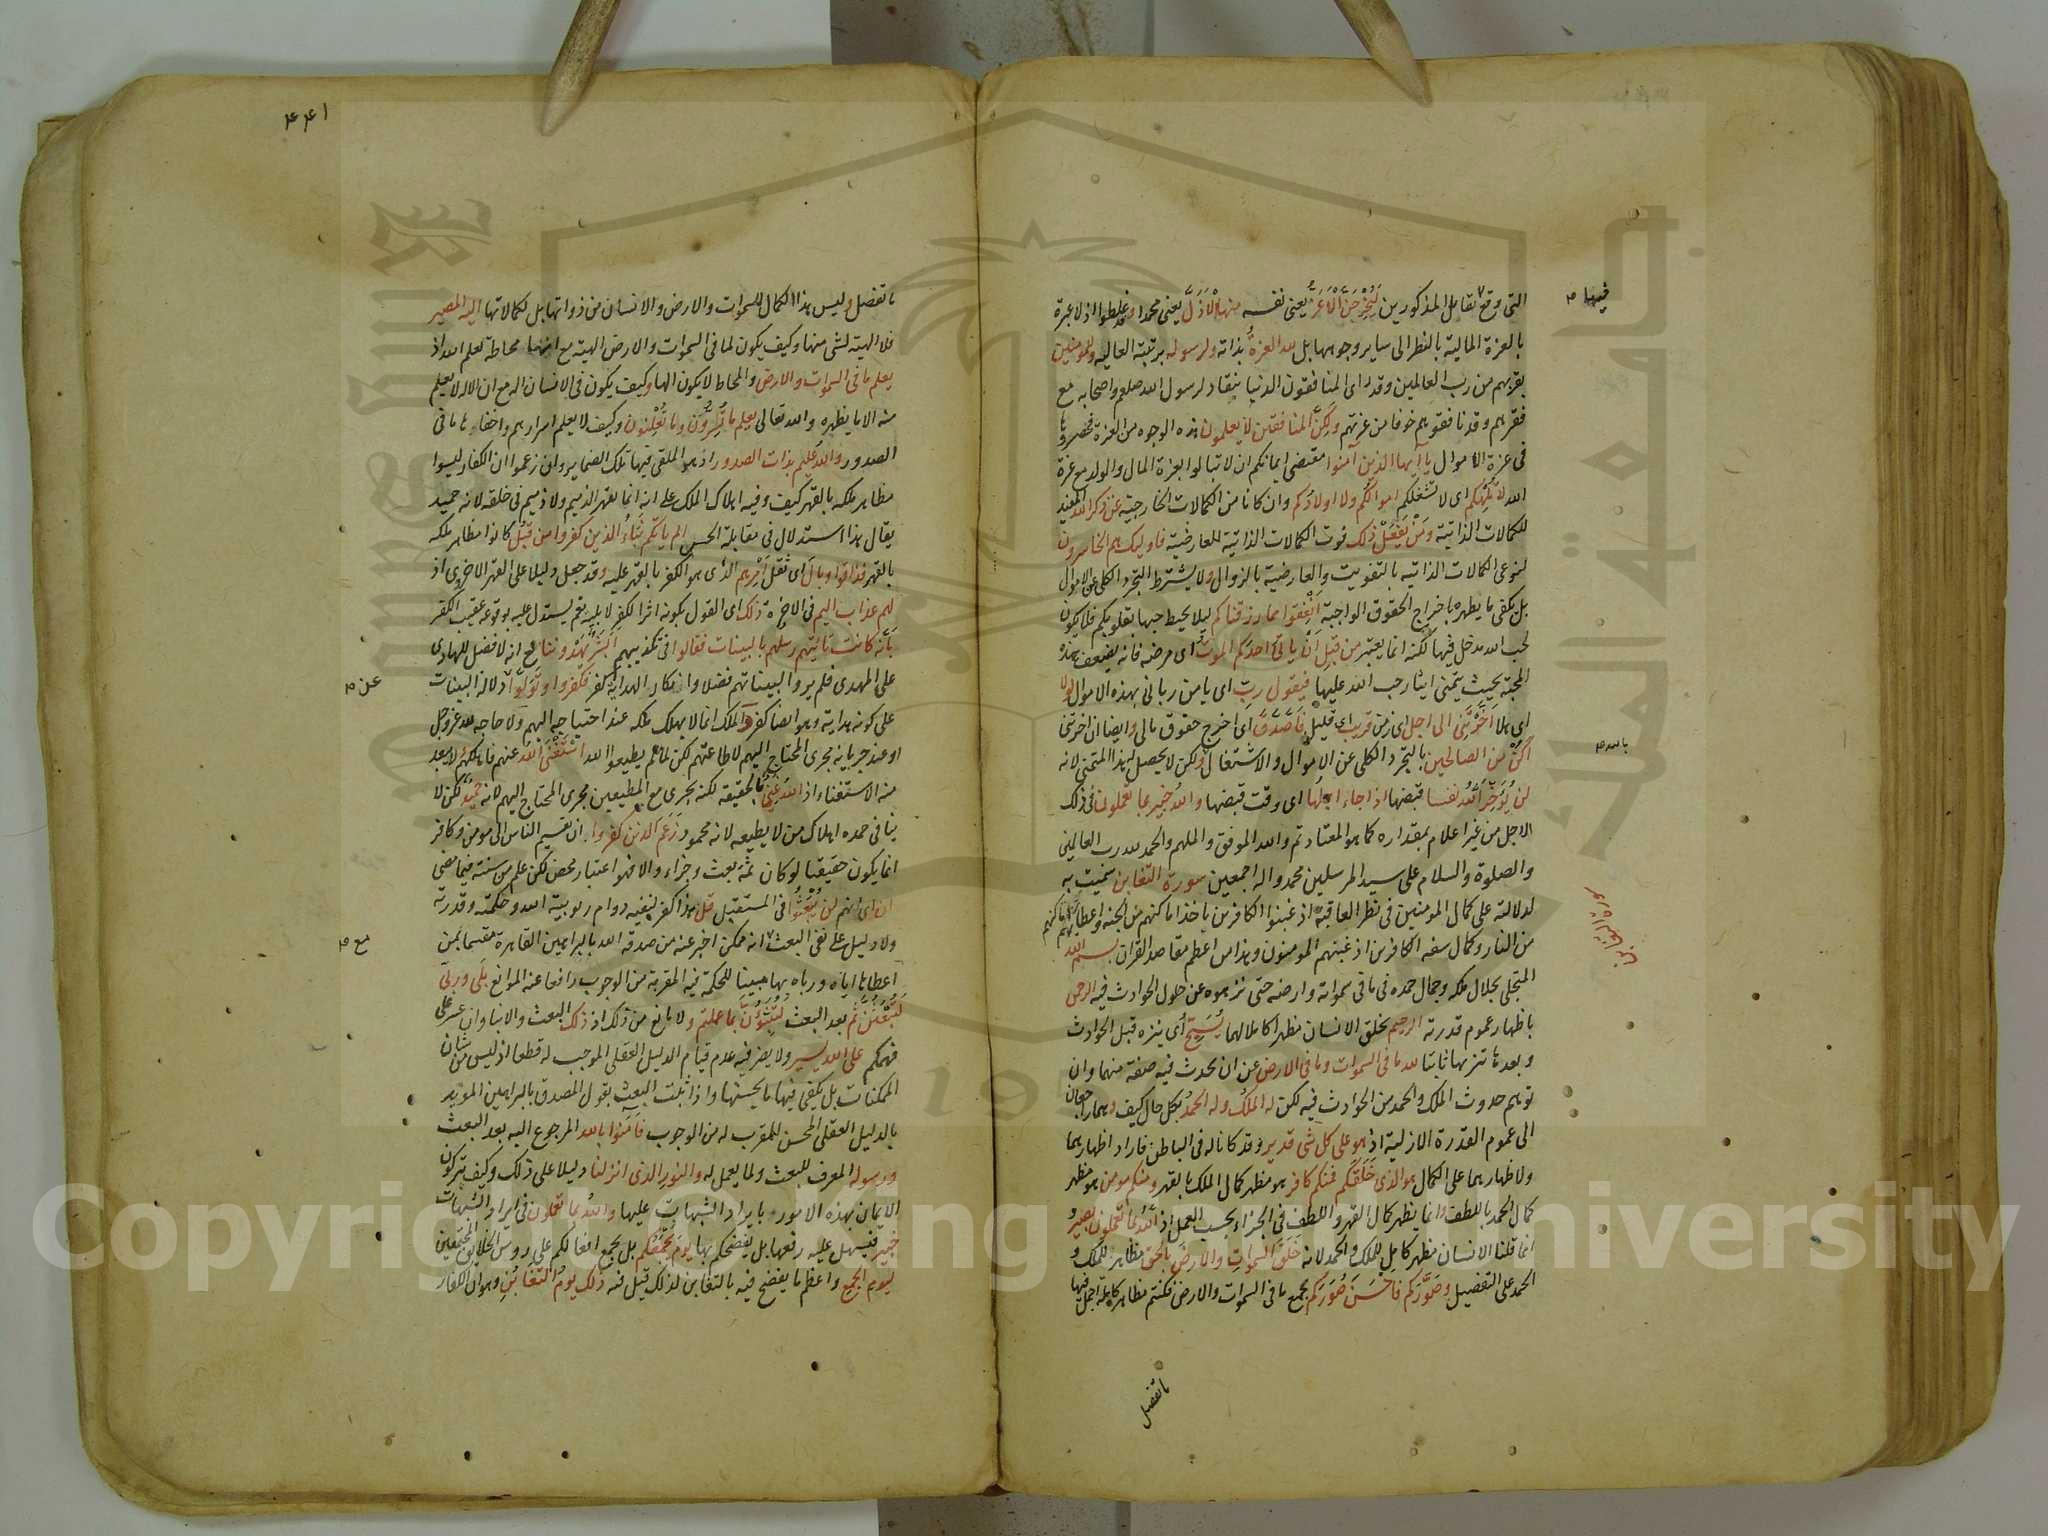 فيها م
التى وقع تقابل المذكورين لَيُخْرِجَنَّ الْاَعَزُّ يعنى نفسه منها الْاَذَلَّ يعنى محمدا وغلطوا اذ لا عبرة
بالعزة المالية بالنظر الى ساير وجوهها بل لله العزةُ بذاته ولرسوله برتبته العاليه وللمومنين
بقربهم من رب العالمين وقد راى المنافقون الدنيا ينقاد لرسول الله صلعم واصحابه مع
فقرهم وقد نافقوهم خوفا من عزتهم ولكنَّ المنافقين لا يعلمون هذه الوجوه من العزة فحصروها
فى عزة الاموال يا ايها الذين آمنوا مقتضى ايمانكم ان لا تبالوا بعزة المال والولد مع عزة
الله لا تُلْهِكُم اى لا تشغلكم اموالُكُم ولا اولادُكم وان كانا من الكمالات الخارجية عن ذكر الله المفيد
للكمالات الذاتية ومَنْ يفعَلْ ذلك فوت الكمالات الذاتية للعارضية فاوليك هم الخاسرون
لنوعى الكمالات الذاتيه بالتفويت والعارضية بالزوال ولا يشترط التجرد الكلى عن الاموال
بل يكفى ما يطهره باخراج الحقوق الواجبة اَنْفِقوا مما رزقناكم ليلا يحيط حبها بقلوبكم فلا يكون
لحب الله مدخل فيها لكنه انما يعتبر من قبل اَنْ ياتى احدَكم الموتُ اى مرضه فانه يضعف هذه
المحبة بحيث يتمنى ايثار حب الله عليها فيقول ربِ اى يا من ربانى بهذه الاموال لولا
اى هلا اَخَّرْتَنى الى اجل اى زمن قريب اى قليل فَاَصَّدَّقَ اى اخرج حقوق مالى وايضا ان اخرتنى
اَكُنْ من الصالحين بالتجرد الكلى عن الاموال والاشتغال ولكن لا يحصل لهذا المتمنى لانه
بالله م
لن يُوَخِّرَ اللهُ نفسا قبضها اذا جاء اجلُها اى وقت قبضها والله خبير بما تعملون فى ذلك
الاجل من غير اعلام بمقداره كما هو المعتاد تم والله الموفق والملهم والحمد لله رب العالمين
والصلوة والسلام على سيد المرسلين محمد واله اجمعين سورة التغابن سميت به
لدلالته على كمال المومنين فى نظر العاقبة اذ غبنوا الكافرين باخذ اماكنهم من الجنه واعطائهم اماكنهم
من النار وكمال سفه الكافرين اذ غبنهم المومنون وهذا من اعظم مقاصد القران بسم الله
المتجلى بجلال ملكه وجمال حمده فى ما فى سمواته وارضه حتى نزهوه عن حلول الحوادث فيه الرحمن
باظهار عموم قدرته الرحيم بخلق الانسان مظهرا كاملا لهما يُسَبِّحُ اى ينزه قبل الحوادث
وبعدها تنزيها ثابتا لله ما فى السموات وما فى الارض عن ان يحدث فيه صفة منهما وان
توهم حدوث الملك والحمد من الحوادث فيه لكن له الملكُ وله الحمدُ بكل حال كيف وهما راجعان
الى عموم القدرة الازلية اذ هو على كل شى قدير وقد كانا له فى الباطن فاراد اظهارهما
ولاظهارهما على الكمال هو الذى خَلَقَكُم فمنكم كافر هو مظهر كمال الملك بالقهر ومنكم مومن هو مظهر
كمال الحمد باللطف وانما يظهر كمال القهر واللطف فى الجزاء بحسب العمل اذ اللهُ بما تعملون بصير و
انما قلنا الانسان مظهر كامل للملك والحمد لانه خَلَقَ السمواتِ والارضَ بالحق مظاهر للملك و
الحمد على التفضيل وصَوَّرَكُم فاحْسَنَ صُوَرَكُم بجمع ما فى السموات والارض فكنتم مظاهر كاملة اجمل فيها
ما تفضل
١٤٤
ما تفضل وليس هذا الكمال للسموات والارض والانسان من ذواتها بل لكمالاتها اليه المصير
فلا الهية لشى منها وكيف يكون لما فى السموات والارض الهية مع انها محاطة لعلم الله اذ
يعلم ما فى السموات والارض والمحاط لا يكون الها وكيف يكون فى الانسان اله مع ان الاله لا يعلم
منه الا ما يظهره والله تعالى يعلم ما تُسِرُّون وما تُعْلِنون وكيف لا يعلم اسرارهم واخفاءها ما فى
الصدور والله عليم بذات الصدور اذ هو الملقى فيها تلك الضماير وان زعموا ان الكفار ليسوا
مظاهر ملكه بالقهر كيف وفيه اهلاك الملك على انه انما يقهر الذميم ولا ذميم فى خلقه لانه حميد
يقال هذا استدلال فى مقابلة الحس الم ياتِكُم نَبَاُ الذين كفروا من قبلُ كانوا مظاهر ملكه
بالقهر فذاقوا وبالَ اى ثقل اَمْرِهم الذى هو الكفر بالقهر عليه وقد جعل دليلا على القهر الاخروى اذ
لهم عذاب اليم فى الاخرة ذلك اى القول بكونه اثرا لكفر لا بليه تعم يستدل عليه بوقوعه عقيب الكفر
بِاَنَّه كانت تاتيهم رسلهم بالبينات فقالوا فى تكذيبهم اَبَشَرٌ يَهْدوننا مع انه لا فضل للهادى
على المهدى فلم يروا البينات لهم فضلا وانكار الهداية كفر فكفروا وتَوَلَّوا دلالة البينات
عن م
على كونه هداية وهو ايضا كفر والملك انما لا يهلك ملكه عند احتياجه اليهم ولا حاجه لله عز وجل
او عند جريانه مجرى المحتاج اليهم لاطاعتهم لكن لما لم يطيعوا الله اسْتَغْنَى اللهُ عنهم فاهلكهم لا يبعد
منه الاستغناء اذ اللهُ غَنِىٌّ بالحقيقه لكنه يجرى مع المطيعين مجرى المحتاج اليهم لانه حميد لكن لا
ينافى حمده اهلاك من لا يطيعه لانه محمود زَعَمَ الذين كفروا ان تقسيم الناس الى مومن وكافر
انما يكون حقيقيا لو كان ثمة بعث وجزاء والا فهو اعتبار محض لكن علم من سنته فيما مضى
ان اى انهم لن يُبْعَثُوا فى المستقبل قل هذا كفر لنفيه دوام ربوبية الله وحكمته وقدرته
ولا دليل على نفى البعث انه ممكن اخبر عنه من صدقه الله بالبراهين القاهرة مقسما بمن
مع م
اعطاها اياه ورباه بها مبينا للحكمة فيه المقربة من الوجوب رافعا عنه الموانع بلَى وربى
لَتُبْعَثُنَّ ثم بعد البعث لَتُنَبَّؤُنَّ بما عملتم ولا مانع من ذلك اذ ذلك البعث والانباء وان عسر على
فهمكم على الله يسير ولا يضر فيه عدم قيام الدليل العقلى الموجب له قطعا اذ ليس من شان
الممكنات بل يكفى فيها ما يحسنها واذا ثبت البعث بقول المصدق بالبراهين المويد
بالدليل العقلى المحسن للمقرب له من الوجوب فآمِنُوا بالله المرجوع اليه بعد البعث
ورسوله المعرف للبعث ولما يعمل له والنورِ الذى انزلنا دليلا على ذلك وكيف تتركون
الايمان بهذه الامور بايراد الشبهات عليها واللهُ بما تعملون فى ايراد الشبهات
خبير فيسهل عليه رفعها بل يفضحكم بها يومَ يَجْمَعُكُم بل يجمع افعالكم على روس الخلايق المجتمعين
ليوم الجمع واعظم ما يفضح فيه بالتغابن لذلك قيل فيه ذلك يومُ التغابُنِ وهو ان الكفار
Copyright © King Saud University